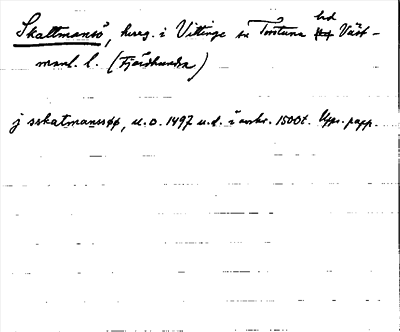 Skattmansö, herrg. i Vittinge sn Torstuna hd Väst-
manl. l. (Fjärdhundra)
j sskatmansøø, u.o. 1497 u.d. i avskr. 1500t. Upps. papp.